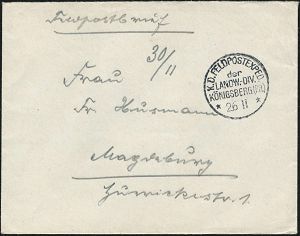 Feldpostbrief
30/11
Frau
Fr. Husmann
Magdeburg
Zwickestr. 1
K.D. FELDPOSTEXPED.
der
LANDW.-DIV.
KÖNIGSBERG
* 26 11 *